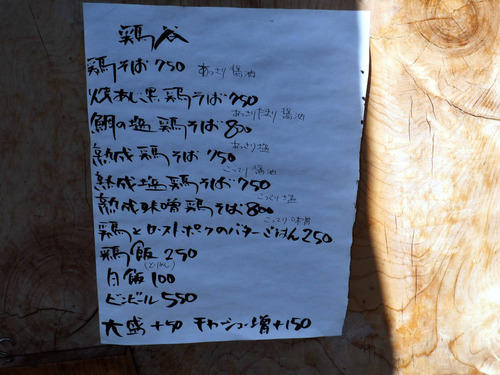 鶏谷
鶏そば 750 あっさり醤油
焼あじ黒鶏そば 750
あっさりたまり醤油
鯛の塩鶏そば 800
あっさり塩
熟成鶏そば 750
こってり醤油
熟成塩鶏そば 750
こってり塩
熟成味噌鶏そば 800
こってり味噌
鶏とローストポークのバターごはん 250
鶏飯 250
(とりめし)
白飯 100
ビンビール 550
大盛+50 チャーシュー増+150